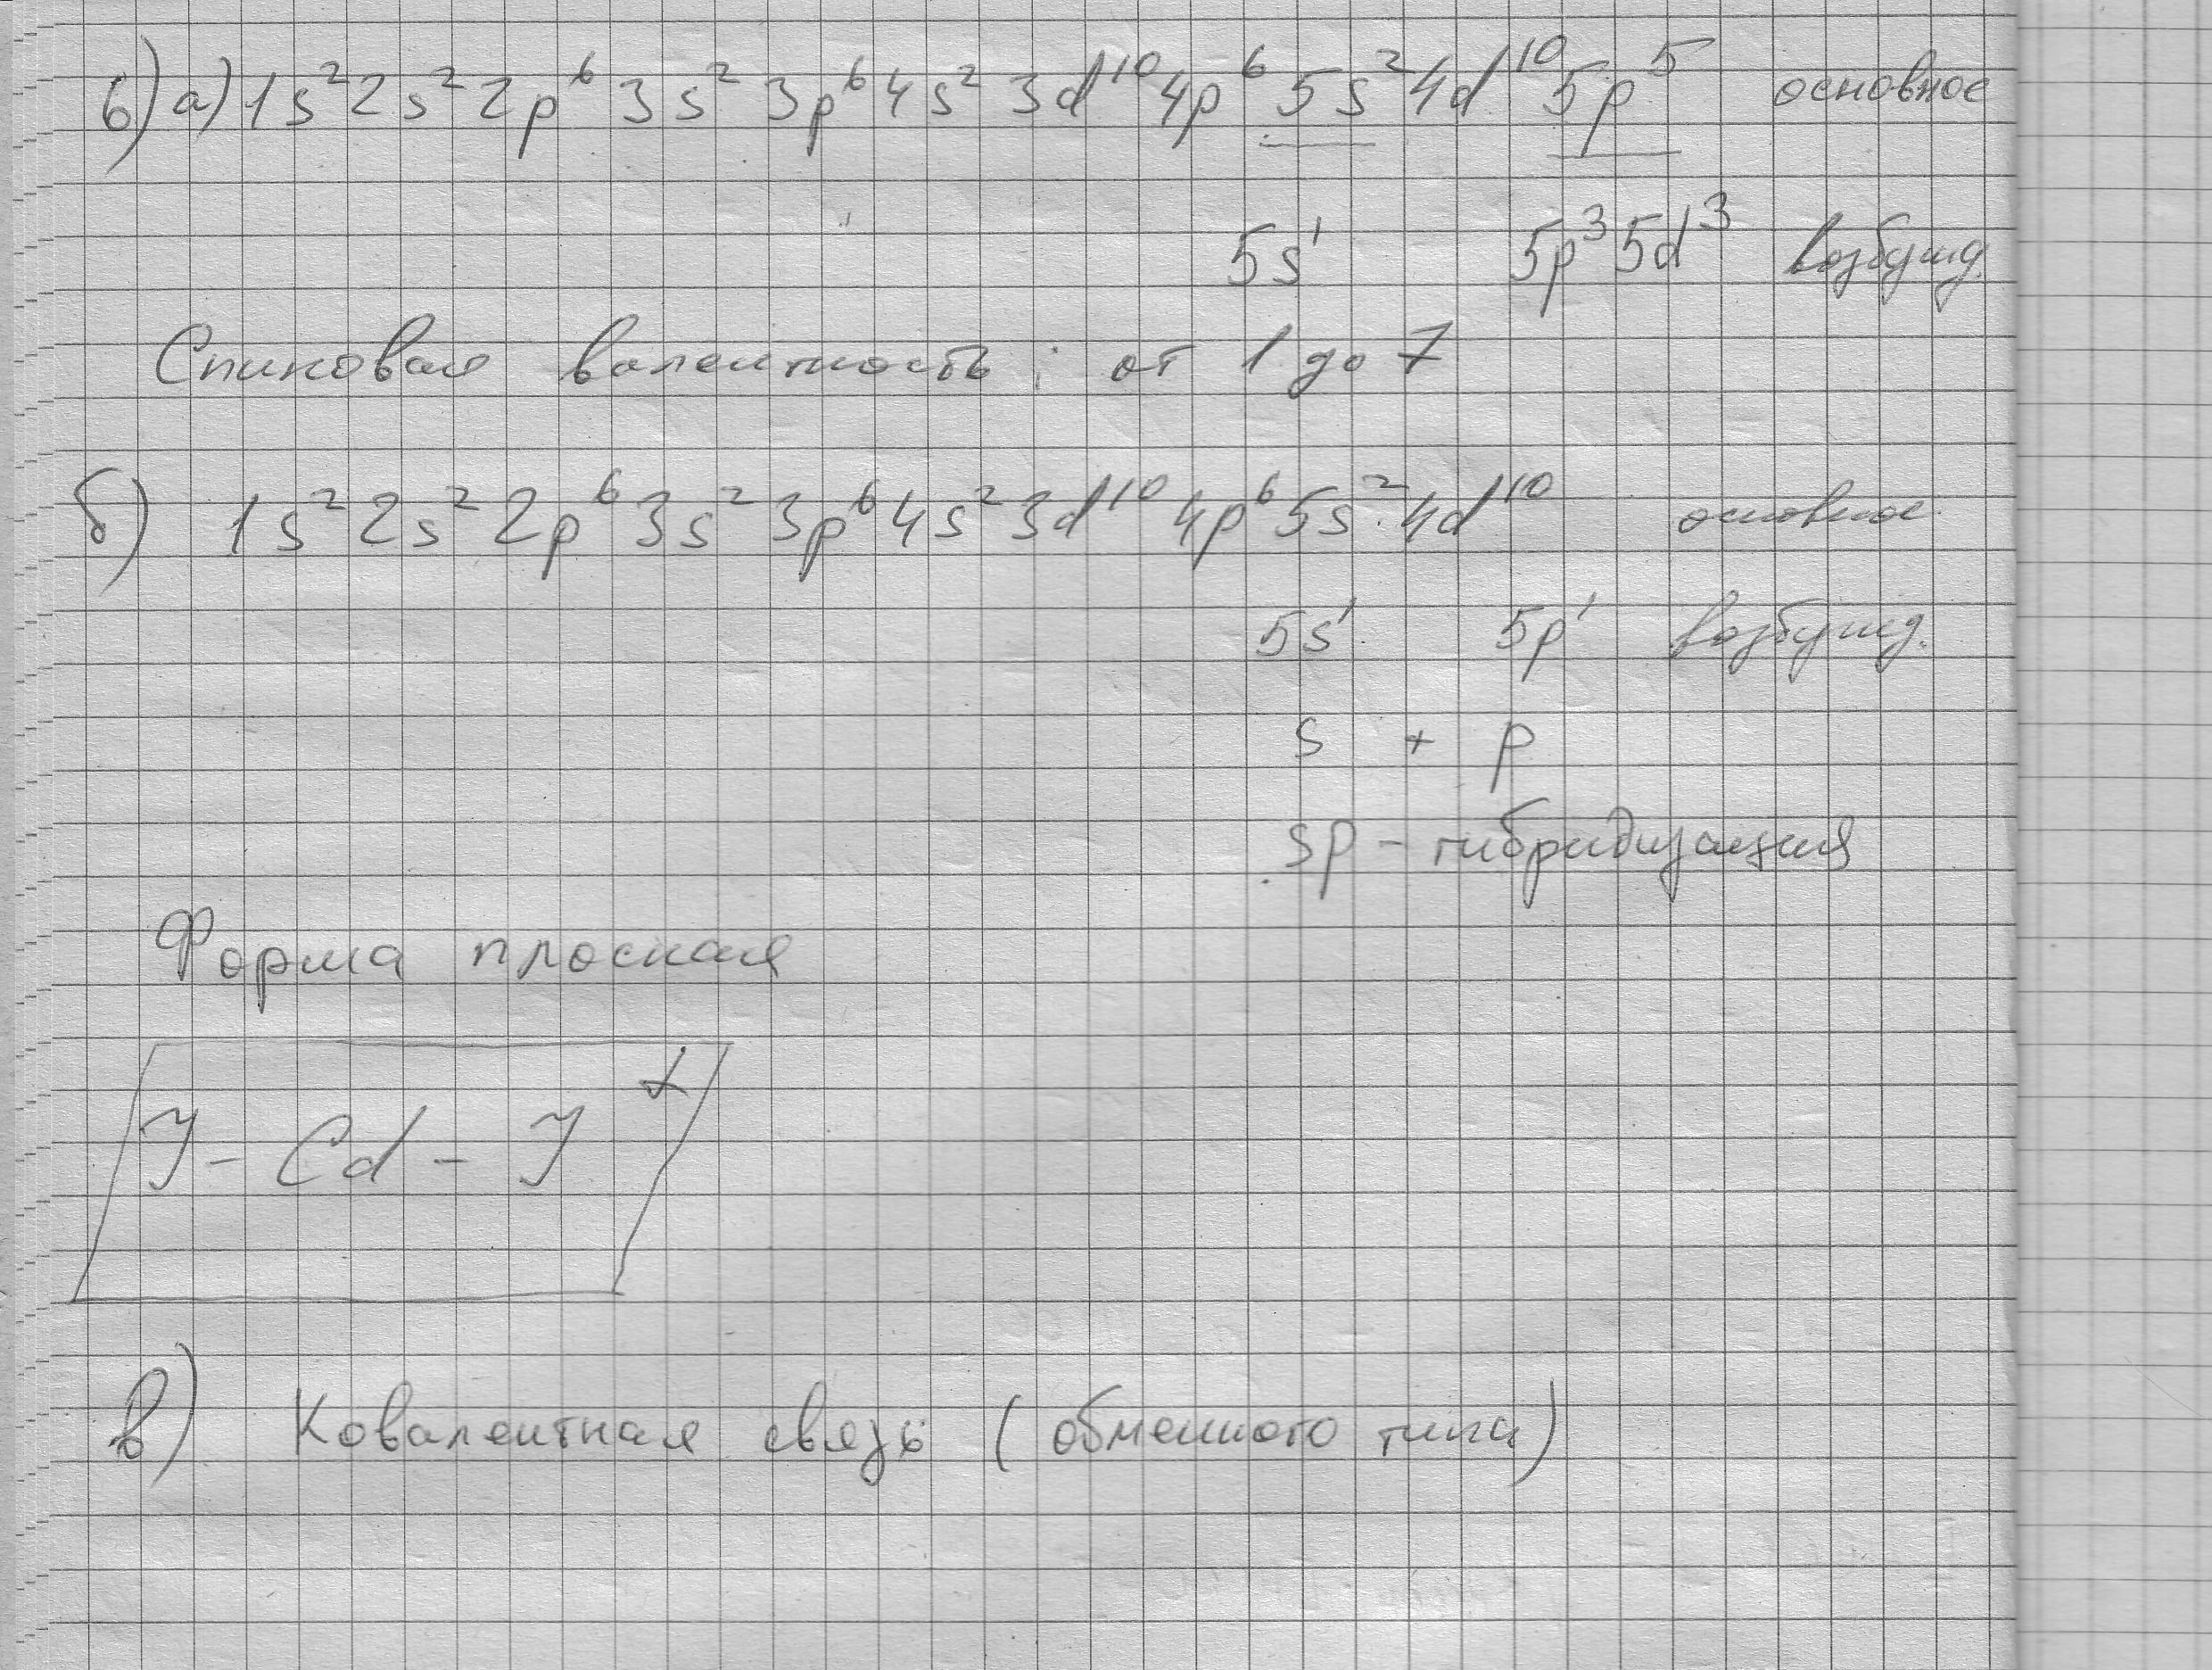 6) а) 1s² 2s² 2p⁶ 3s² 3p⁶ 4s² 3d¹⁰ 4p⁶ 5s² 4d¹⁰ 5p⁵ основное
5s¹ 5p³ 5d³ возбужд.
Спиновая валентность: от 1 до 7
б) 1s² 2s² 2p⁶ 3s² 3p⁶ 4s² 3d¹⁰ 4p⁶ 5s² 4d¹⁰ основное.
5s¹ 5p¹ возбужд.
s + p
sp - гибридизация
Форма плоская
α
J - Cd - J
в) Ковалентная связь (обменного типа)